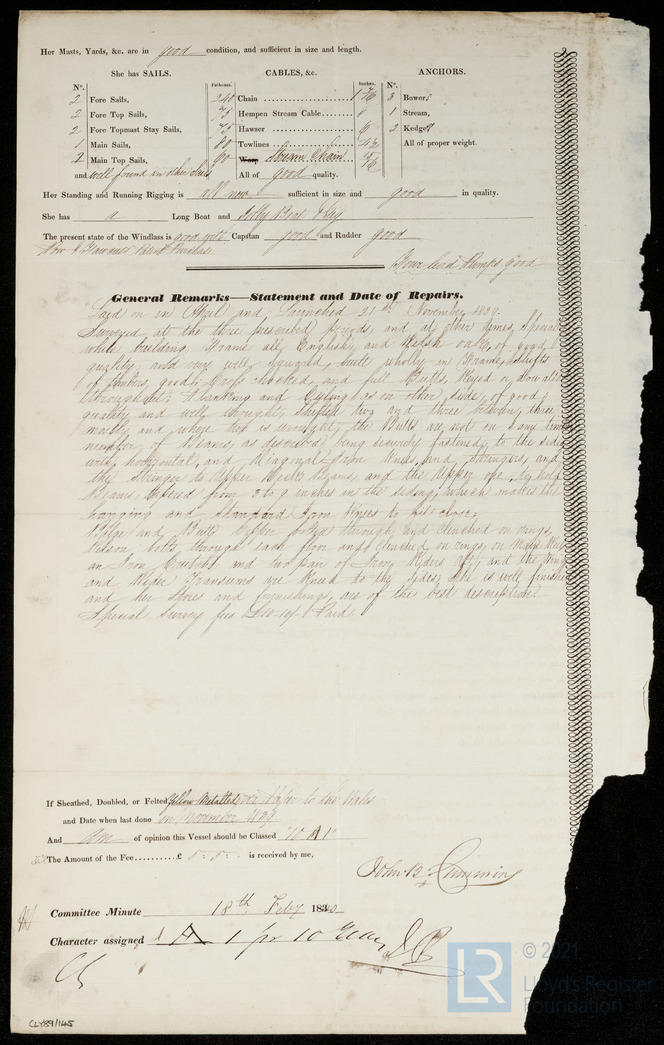 Her Masts, Yards, &c. are in good condition, and sufficient in size and length.
She has SAILS. CABLES, &c. ANCHORS.
N°. Fathoms. Inches. N°.
2 Fore Sails, 240 Chain 1 7/16 3 Bowers
2 Fore Top Sails, 75 Hempen Stream Cable 8 1 Stream,
2 Fore Topmast Stay Sails, 75 Hawser 6 2 Kedges
1 Main Sails, 80 Towlines All of proper weight.
2 Main Top Sails, 60 Warp Stream Chain
and well found in other Sails All of good quality.
Her Standing and Running Rigging is all new sufficient in size and good in quality.
She has a Long Boat and Jolly Boat
The present state of the Windlass is good with Capstan good and Rudder good
Four lead Pumps good
General Remarks—Statement and Date of Repairs.
Laid on in April and Launched 21st November 1839.
Surveyed at the three prescribed periods, and at other times, Specially
while building, Frame all English, and Welsh oak, of good
quality, and very well squared, built wholly in Frame, Shifts
of timbers, good, Cross chocked, and full Butts,
throughout; Planking and Ceiling as on other side, of good
quality and well wrought, shifted two and three between, three
mostly, and where two is wrought, the Butts are not on same timber
number of Beams, as described, being securely fastened, to the sides
with horizontal, and Diagonal Iron Knees, and Stringers, and
the Stringer to Upper Deck Beams, and the Upper one
Beams tapered from 3 to 9 inches in the siding, which makes the
hanging and Standard Iron Knees to fit close.
Bilge and Butt Copper bolted through and Clenched on rings,
Kelson bolts, through each floor and Clenched on rings, on Main Keel
an Iron Crutch, and two pair of Iron Riders Aft, and the Wing
and other Transoms are Kneed to the Sides; She is well finished
and her Stores and furnishings, are of the best description.
Special Survey fees Paid.
If Sheathed, Doubled, or Felted Yellow Metalled over Paper to the Wales
and Date when last done in November 1839
And am of opinion this Vessel should be Classed 10 A 1
The Amount of the Fee £ 5: 5: is received by me,
John B. Cumming
Committee Minute 18th Feby 1840
Character assigned A 1 for 10 Years
CLY89/145
LR
© 2021
Lloyd's Register
Foundation